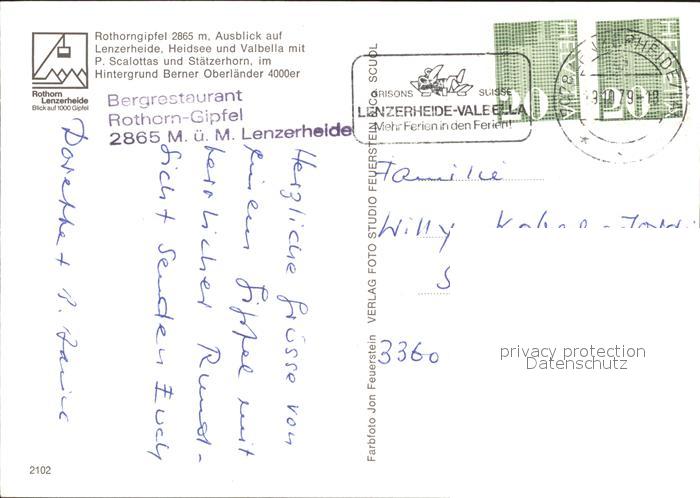 Rothorngipfel 2865 m, Ausblick auf
Lenzerheide, Heidsee und Valbella mit
P. Scalottas und Stätzerhorn, im
Hintergrund Berner Oberländer 4000er
Rothorn
Lenzerheide
Blick auf 1000 Gipfel
Bergrestaurant
Rothorn-Gipfel
2865 M. ü. M. Lenzerheide
Herzliche Grüsse von
einem Gipfel mit
herrlicher Rund-
sicht senden Euch
Dorette + P.
2102
Farbfoto Jon Feuerstein VERLAG FOTO STUDIO FEUERSTEIN SCUOL
GRISONS SUISSE
LENZERHEIDE-VALBELLA
Mehr Ferien in den Ferien!
7078 LENZERHEIDE/LAI
HELVETIA
HELVETIA
Familie
Willy
3360
privacy protection
Datenschutz